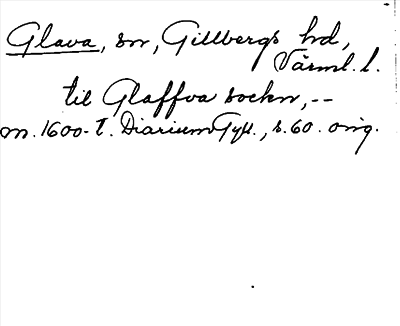 Glava, sn, Gillbergs hd,
Värml. l.
til Glaffva sockn, --
m. 1600-t. Diarium Gyll., s. 60. orig.